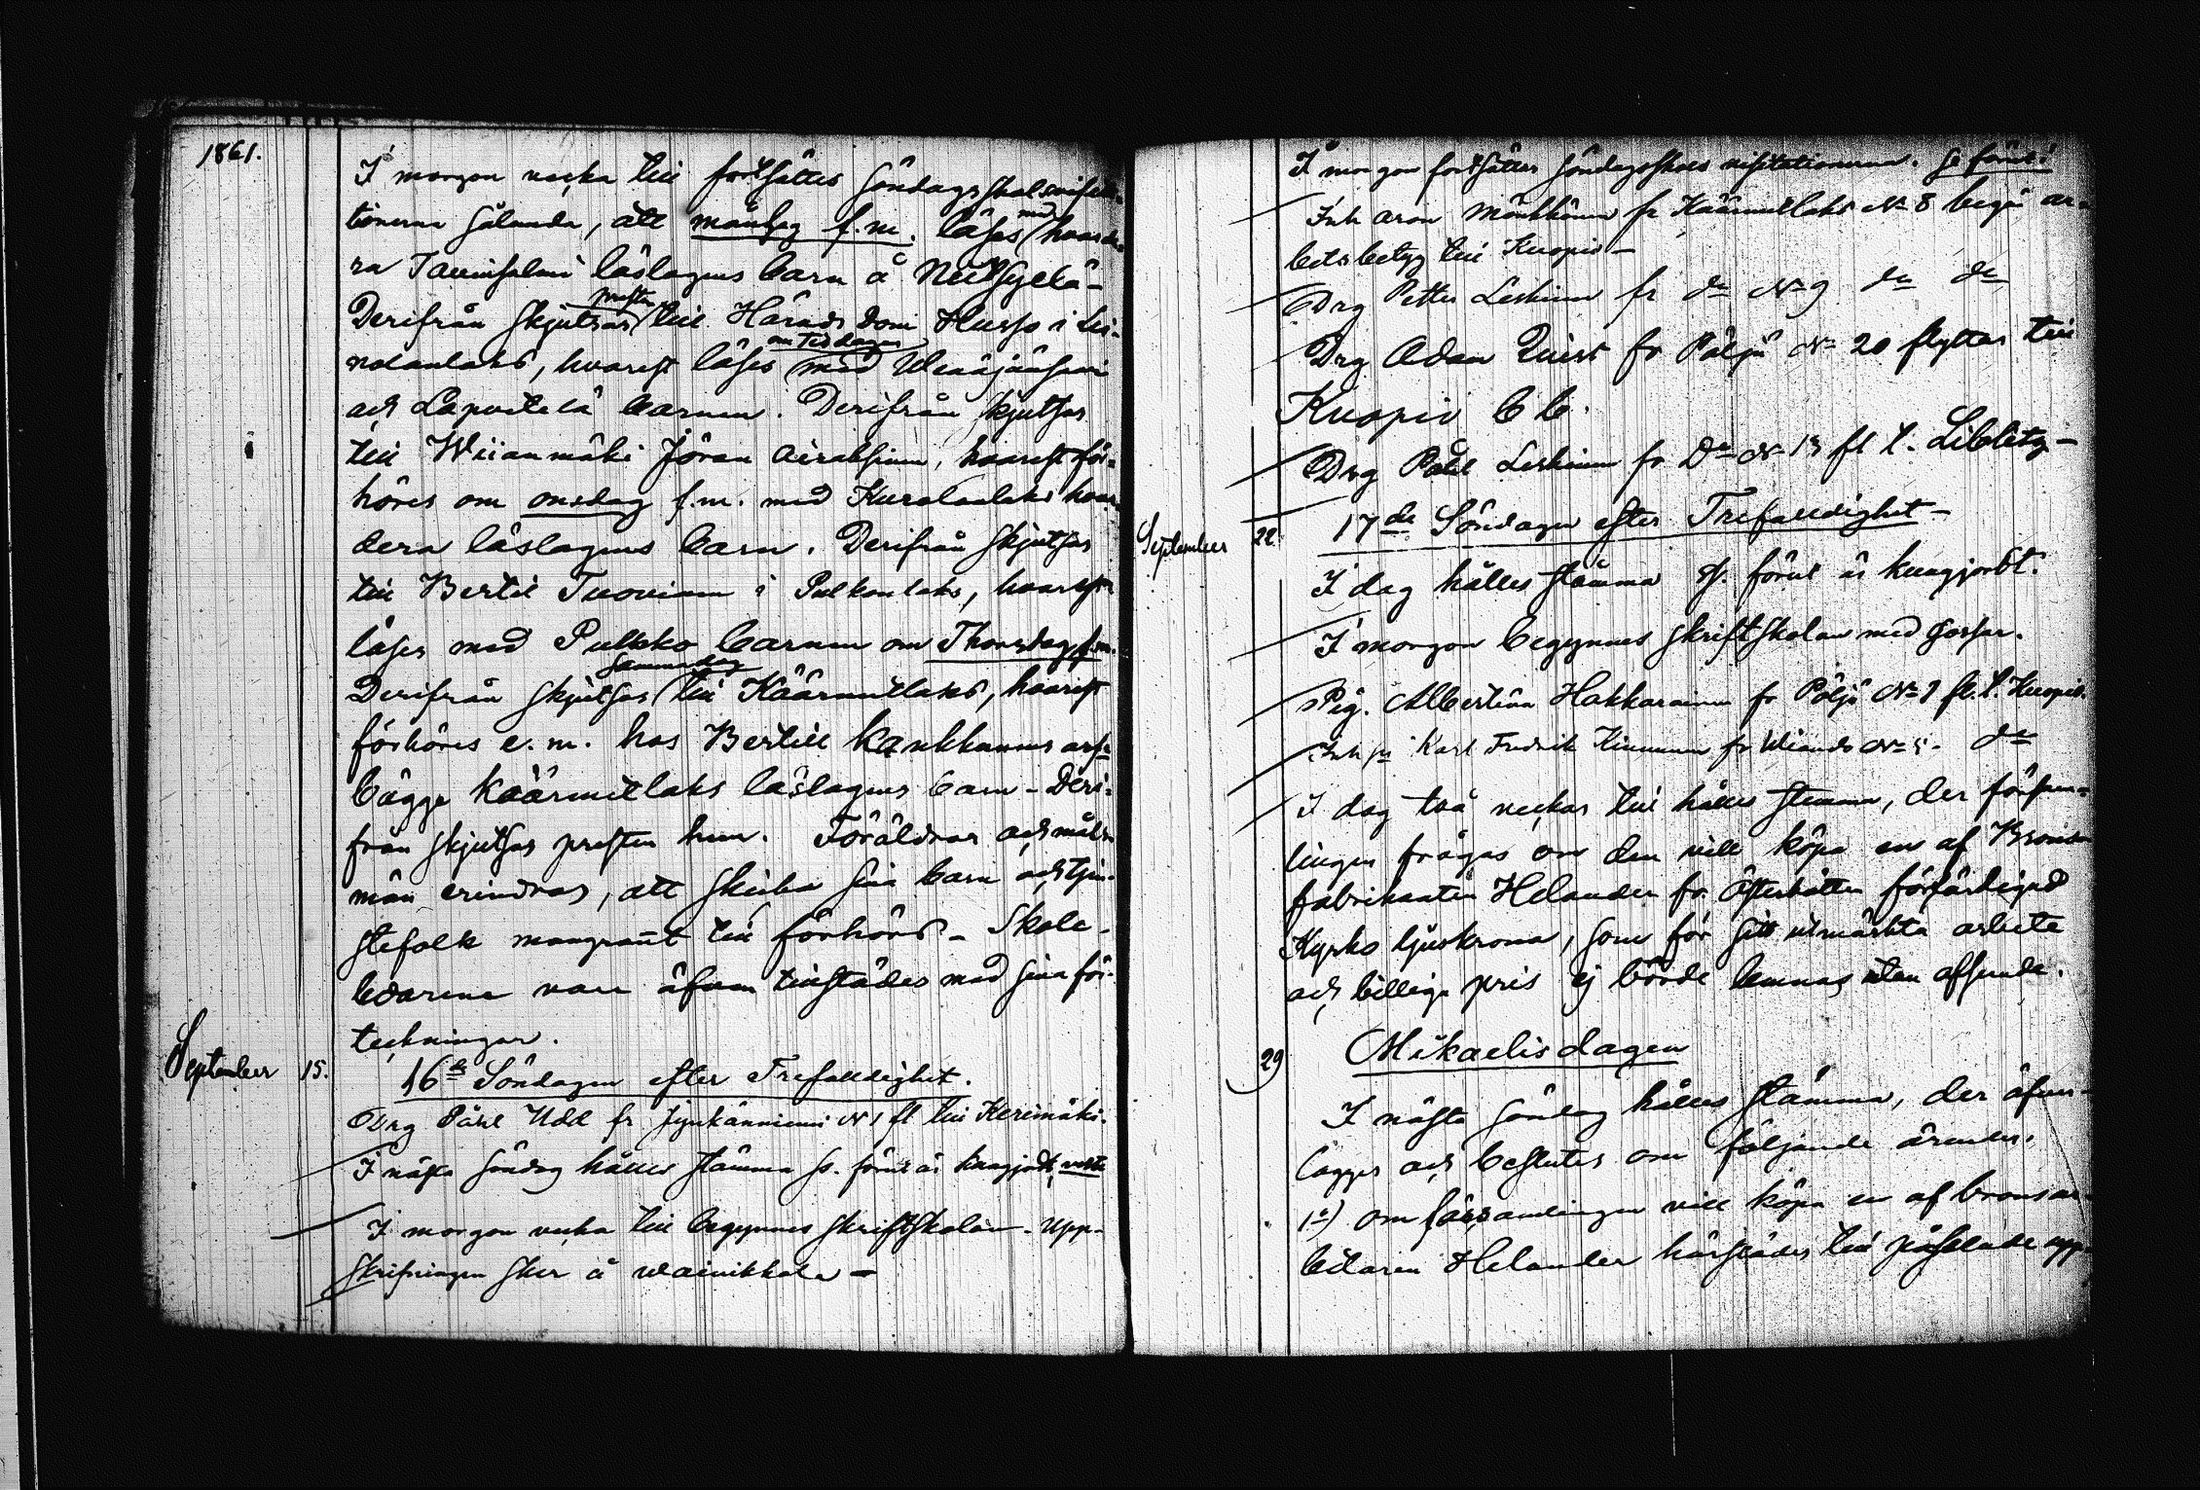 1861.
I morgon vecka till fortsättes Söndagsskolsvisita-
tionerna sålunda, att måndag f.m. läses med hvarde-
ra Tavinsalmi läslagens barn å Nilsgelä-
Derifrån skjutsas presten till Härads dom Husso i
ndanlaks, hvarest läses om tisdagen med Wenäjänsaari
och Lapvetelä barnen. Derifrån skjutsas
till Wiianmäki Jöran Airaksinen, hvarest för-
höres om onsdag f.m. med Kurolanlaks hvar
dera läslagens barn. Derifrån skjutsas
till Bertil Tuovinen i Pulkonlaks, hvarest
läses med Pulkko barnen om Thorsdag f.m.
Derifrån skjutsas samma dag till Käärmetlaks, hvarest
förhöres e.m. hos Bertill Kankkunens
bägge Käärmetlaks läslagens barn - Deri-
från skjutsas presten hem. Föräldrar och måls-
män erindras, att skicka sina barn och tjen-
stefolk mangrannt till förhörs - Skole-
bedarena vare äfven tillstädes med sina för-
teckningar.
September 15. 16de Söndagen efter Trefaldighet.
Drg Påhl Udd fr Jynkänniemi N 1 fl till Kerimäki.
I nästa Söndag hålles stämma so. förut är kungjordt,
I morgon vecka till begynnes skriftskolan - Upp-
skrifningen sker å Wainikkala -
I morgon fortsättes Söndagsskols visitationerna. Se förut!
Inh Aron Mönkkönen fr Käärmetlaks No 8 begär ar-
betsbetyg till Kuopio -
Drg Petter Leskinen fr do No 9 do do
Drg Adam Qvist fr Pöljä No 20 flyttar till
Kuopio
Drg Påhl Leskinen fr Do No 13 fl t. Libelitz -
September 22 17de Söndagen efter Trefaldighet -
I dag hålles stämma so. förut är kungjordt.
I morgon begynnes skriftskolan med gossar.
Pig. Albertina Hakkarainen fr Pöljä No 9 fl. t. Kuopio.
Inh Karl Fredrik Kinnunen fr Wiands No 5. do
I dag två veckor till hålles stemma, der försam-
lingen frågas om den vill köpa en af Brons
fabrikanten Helander fr. Österbotten förfärdigad
Kyrko ljuskrona, som för sitt utmärkta arbete
och billiga pris ej borde lemnas utan afseende.
29 Mikaelisdagen
I nästa Söndag hålles stämma, der öfver-
lägges och beslutes om följande ärender.
1o) om församlingen vill köpa en af bronsar-
betaren Helander härstädes till påseende upp-